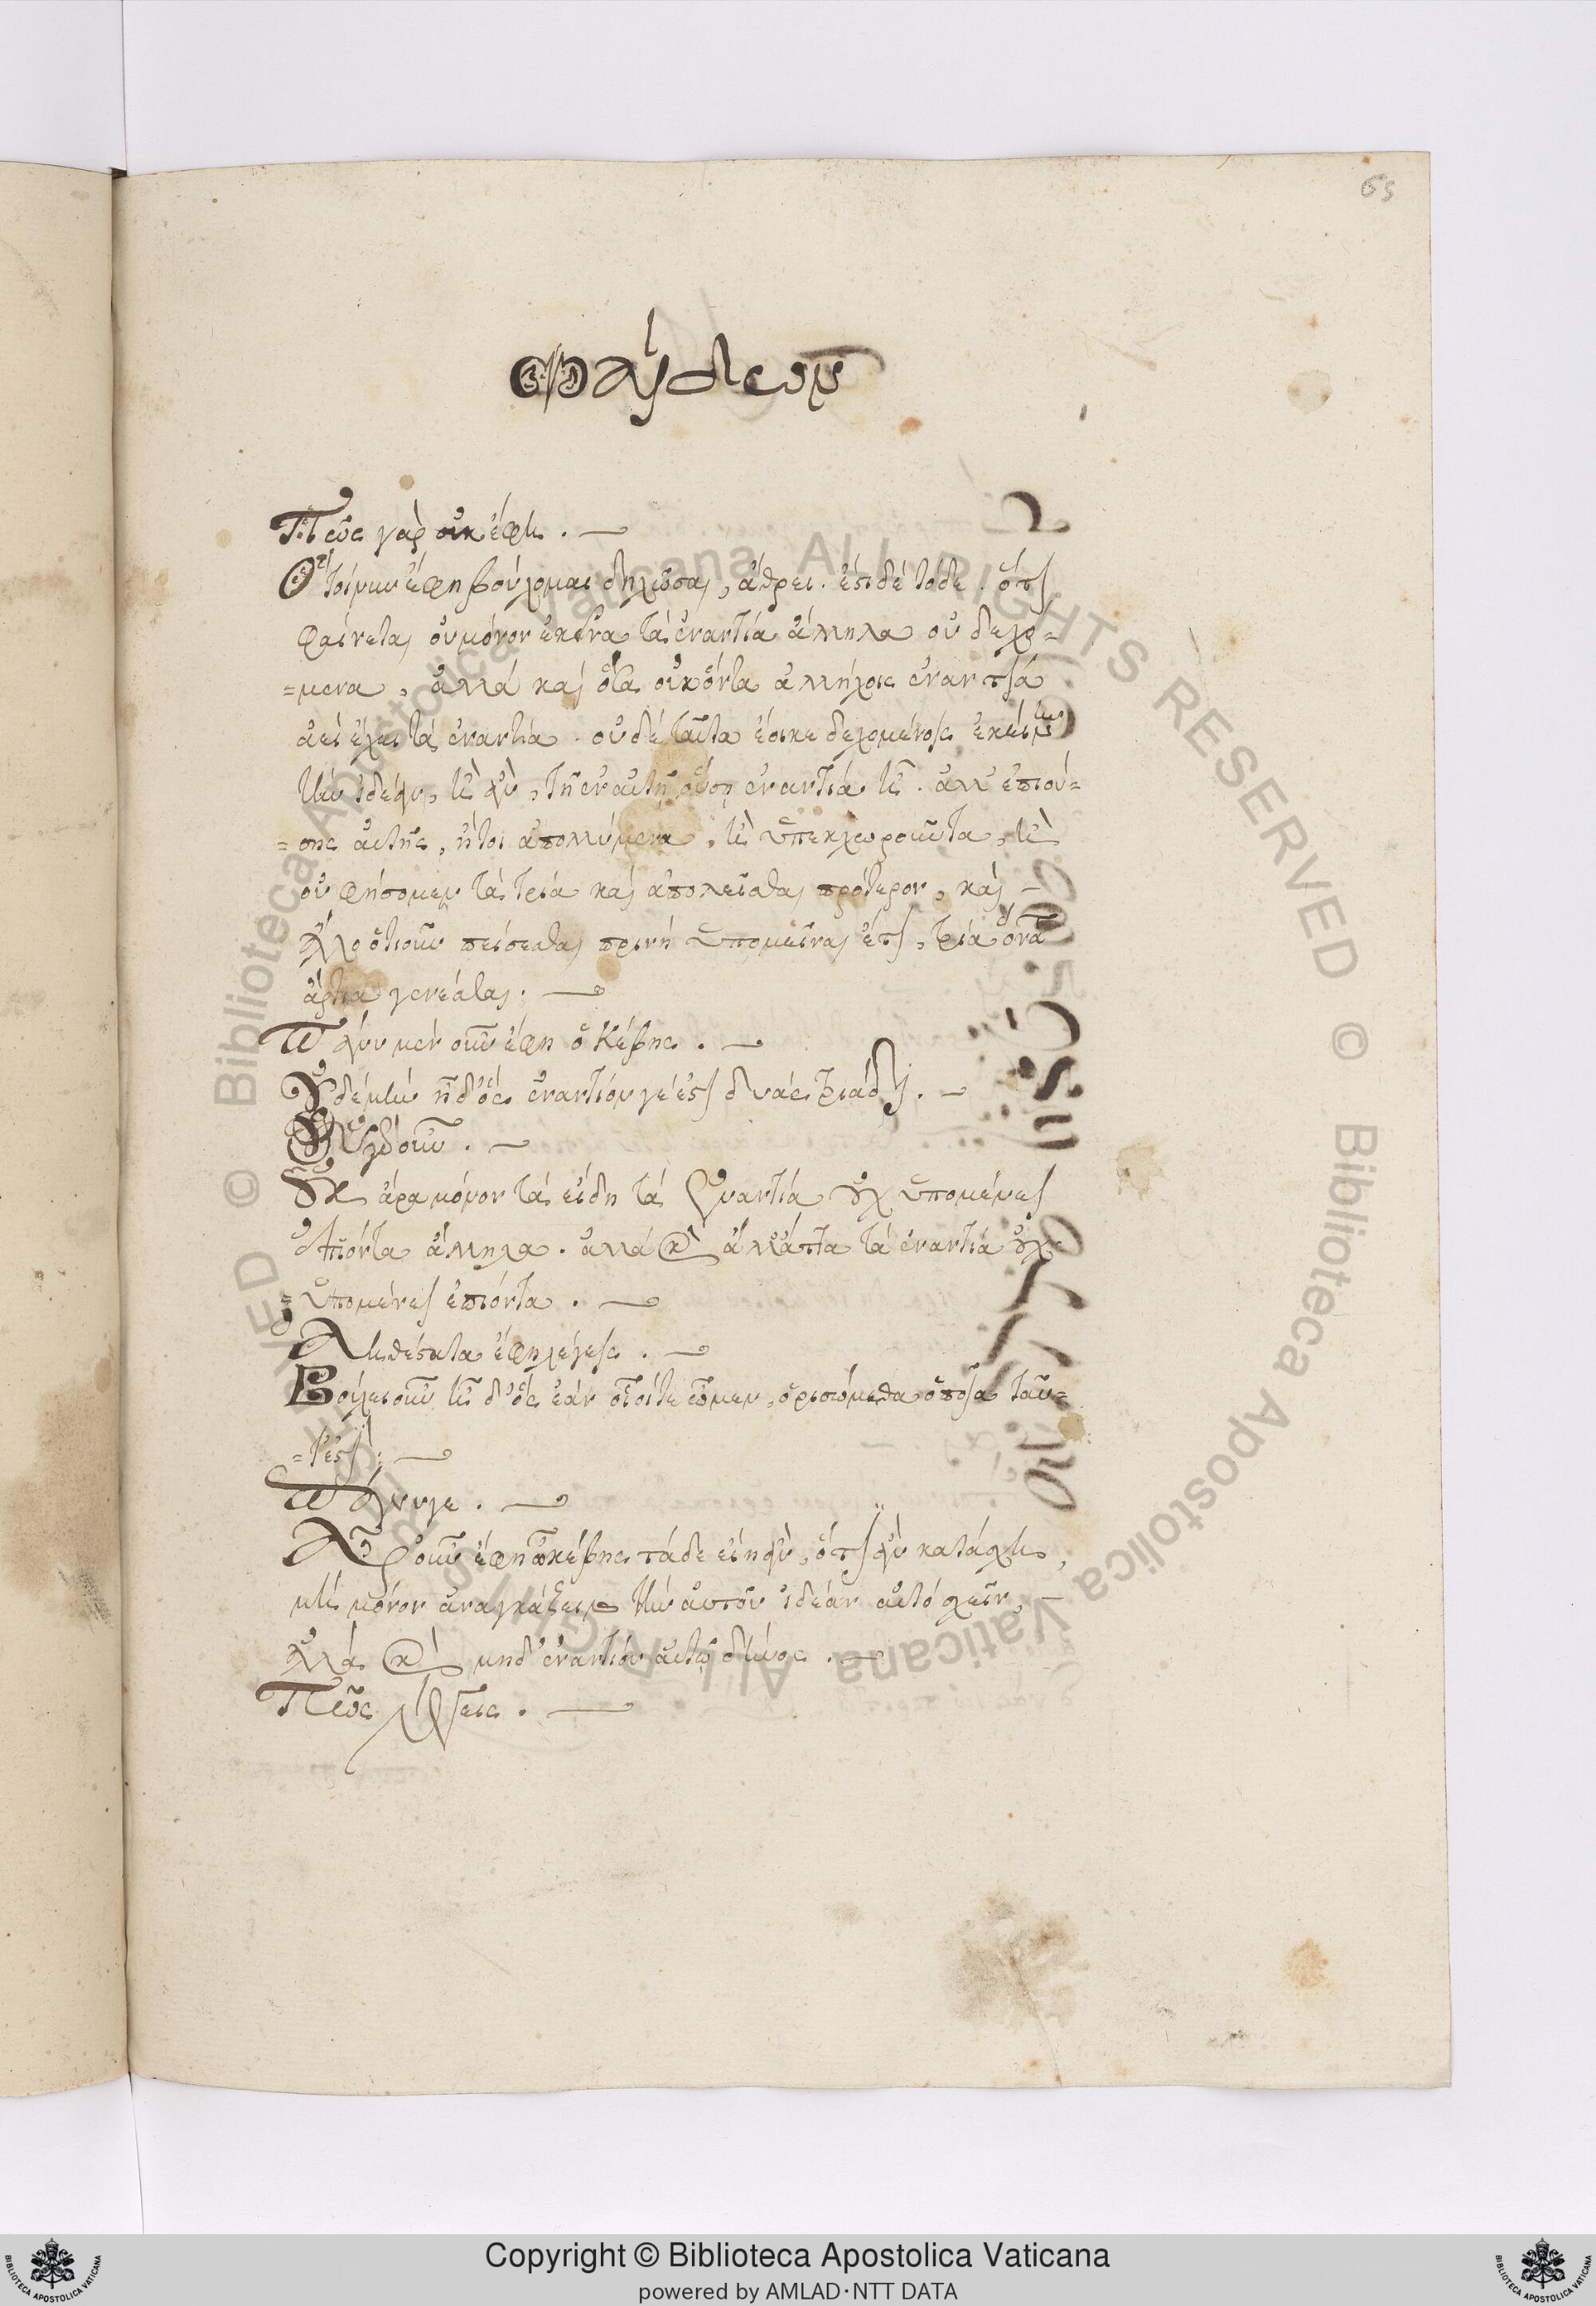 65
Φαίδων
Πῶς γὰρ οὐκ ἔφη.
Ὃ τοίνυν ἔφη βούλομαι δηλῶσαι, ἄθρει. ἔστι δέ τόδε. ὅτι
φαίνεται οὐ μόνον ἐκεῖνα τὰ ἐναντία ἄλληλα οὐ δεχό=
=μενα, ἀλλά καὶ ὅσα οὐκ ὄντα ἀλλήλοις ἐναντία
ἀεί ἔχει τὰ ἐναντία. οὐδέ ταῦτα ἔοικε δεχομένοις ἐκείνην
τὴν ἰδέαν, ἣ ἂν, τῇ ἐν αὐτῇ οὔσῃ ἐναντία ᾖ. ἀλλ' ἐπιού=
=σης αὐτῆς, ἤτοι ἀπολλύμενα, ἢ ὑπεκχωροῦντα, ἢ
οὐ φήσομεν τὰ τρία καὶ ἀπολεῖσθαι πρότερον, καὶ
ἄλλο ὁτιοῦν πείσεσθαι πρινή ὑπομεῖναι ἔτι, τρία ὄντα
ἄρτια γενέσθαι.
Πάνυ μέν οὖν ἔφη ὁ Κέβης.
Οὐδέ μὴν ἦ δ' ὅς ἐναντίον γέ ἐστι δυάς τριάδι.
Οὐ γάρ οὖν.
Οὐκ ἄρα μόνον τὰ εἴδη τὰ ἐναντία οὐχ ὑπομένει
ἐπιόντα ἄλληλα. ἀλλά καὶ ἄλλ' ἄττα τὰ ἐναντία οὐχ
=ὑπομένει ἐπιόντα.
Ἀληθέστατα ἔφη λέγεις.
Βούλει οὖν ἦ δ' ὅς ἐάν οἷοί τε ὦμεν, ὁρισώμεθα ὁποῖα ταῦ=
=τ' ἐστί;
Πάνυ γε.
Ἆρ' οὖν ἔφη ὦ κέβης τάδε εἴη ἂν, ὅτι ἂν κατάσχῃ,
μὴ μόνον ἀναγκάζειν τὴν αὐτοῦ ἰδέαν αὐτό ἴσχειν,
ἀλλά καὶ μηδ' ἐναντίον αὐτῷ
Πῶς λέγεις.
Copyright © Biblioteca Apostolica Vaticana
powered by AMLAD·NTT DATA